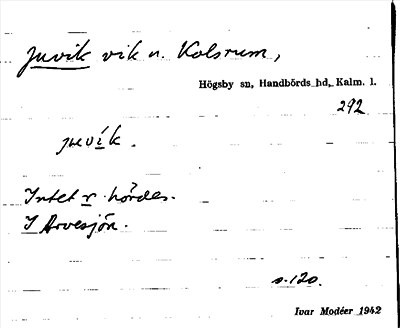 Juvik vik n. Kolsrum,
Högsby sn, Handbörds hd, Kalm. l.
292
juvík.
Intet r hördes.
I Arvesjön.
s. 120.
Ivar Modéer 1942